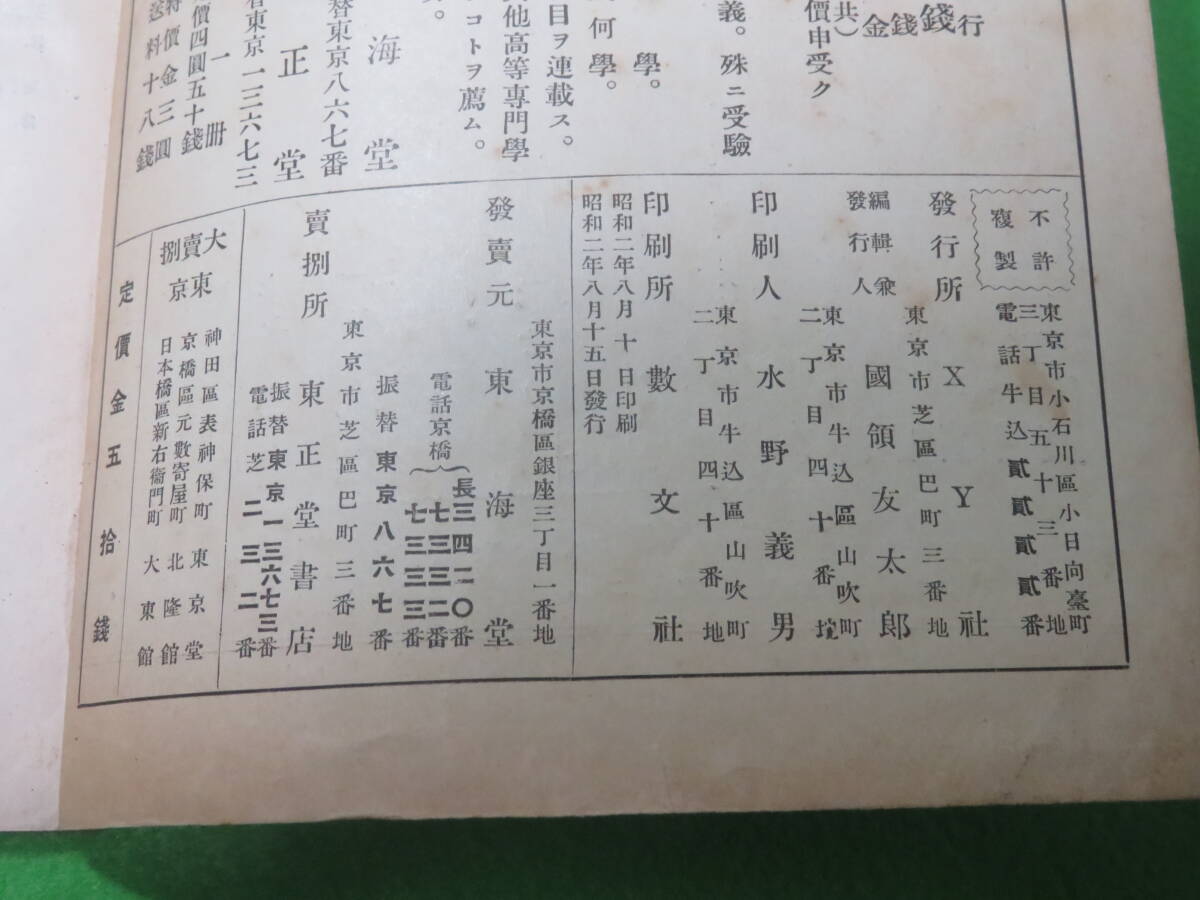 行
錢
錢
金
共)
價申受ク
義。殊ニ受驗
學。
何學。
目ヲ連載ス。
其他高等專門學
コトヲ薦ム。
海堂
替東京八六七番
正堂
替東京一三六七三
一冊
價四圓五十錢
特價金三圓
送料十八錢
不許
複製
發行所 XY社
東京市小石川區小日向臺町
三丁目五十三番地
電話牛込貳貳貳貳番
編輯兼
發行人 國領友太郎
東京市芝區巴町三番地
印刷人 水野義男
東京市牛込區山吹町
二丁目四十番地
印刷所 數文社
東京市牛込區山吹町
二丁目四十番地
昭和二年八月十日印刷
昭和二年八月十五日發行
發賣元 東海堂
東京市京橋區銀座三丁目一番地
電話京橋 長三四二〇番
七三三二番
七三三三番
振替東京八六七番
賣捌所 東正堂書店
東京市芝區巴町三番地
振替東京一三六七三番
電話芝二三二番
大賣捌
東京
神田區表神保町 東京堂
京橋區元數寄屋町 北隆館
日本橋區新右衞門町 大東館
定價金五拾錢